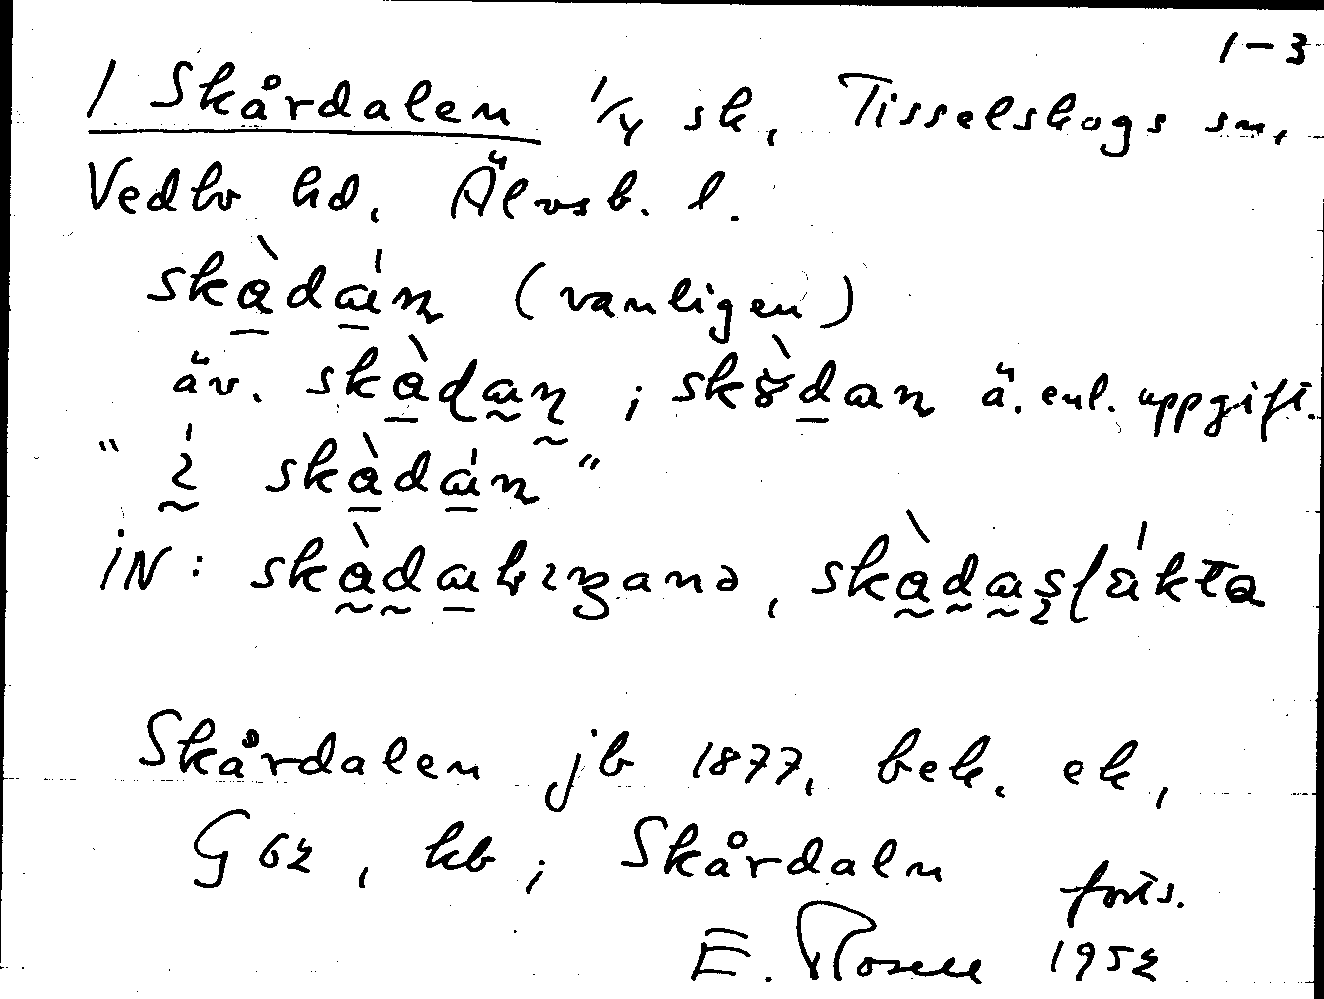 1-3
1 Skårdalen 1/4 sk, Tisselskogs sn,
Vedbo hd, Älvsb. l.
skàdán (vanligen)
äv. skàdan ; skòdan ä. enl. uppgift.
" í skàdán "
iN: skàda , skàda
Skårdalen jb 1877, bek. ek,
G62, kb ; Skårdaln forts.
E. Rosell 1952